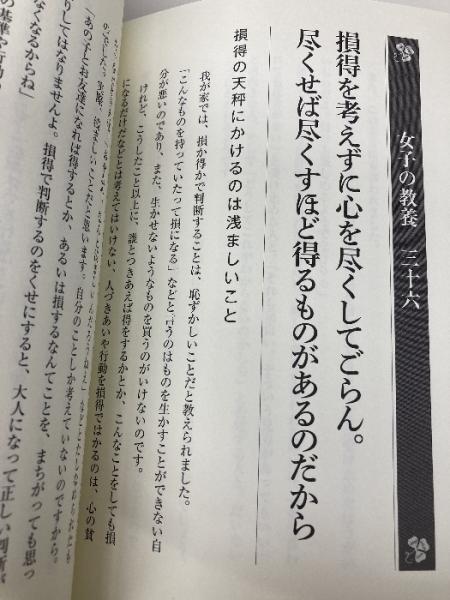 女子の教養 三十六
損得を考えずに心を尽くしてごらん。
尽くせば尽くすほど得るものがあるのだから
損得の天秤にかけるのは浅ましいこと
我が家では、損か得かで判断することは、恥ずかしいことだと教えられました。
「こんなものを持っていたって損になる」などと言うのはものを生かすことができない自
分が悪いのであり、また、生かせないようなものを買うのがいけないのです。
けれど、こうしたこと以上に、誰とつきあえば得をするかとか、こんなことをしても損
になるだけだなどとは考えてはいけない、人づきあいや行動を損得ではかるのは、心の貧
浅ましいことだと思います。自分のことしか考えていないのですから。
「あの子とお友達になれば得するとか、あるいは損するなんてことを、まちがっても思っ
りしてはなりませんよ。損得で判断するのをくせにすると、大人になって正しい判断が
なくなるからね」
の基準や行動